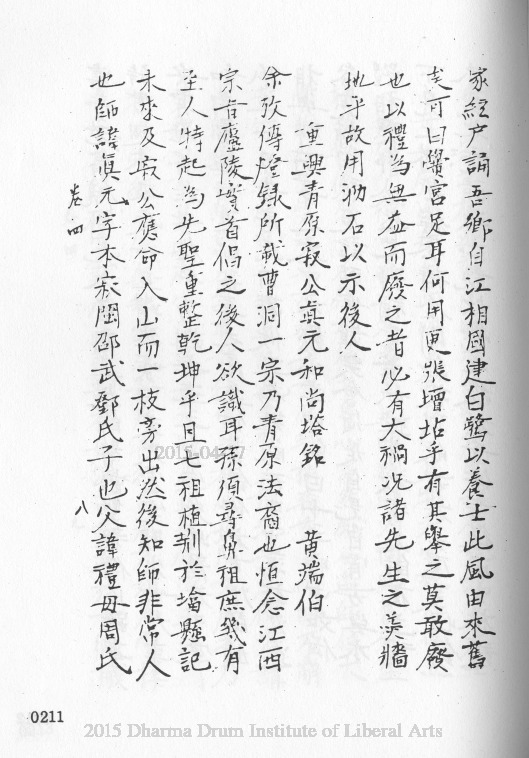 家經戶誦吾鄉自江相國建白鷺以養士此風由來舊
矣可曰黌宮足耳何用更張壇坫乎有其舉之莫敢廢
也以禮為無益而廢之者必有大禍况諸先生之羹牆
地乎故用泐石以示後人
重興青原寂公眞元和尚塔銘 黃端伯
余攷傳燈錄所載曹洞一宗乃青原法裔也恒念江西
宗旨廬陵實首倡之後人欲識耳孫須尋鼻祖庶幾有
至人特起為先聖重整乾坤乎且七祖植荊於墖懸記
未來及寂公應命入山而一枝旁出然後知師非常人
也師諱眞元字本寂閩邵武鄧氏子也父諱禮母周氏
卷四
八
2015-04-17
0211
2015 Dharma Drum Institute of Liberal Arts